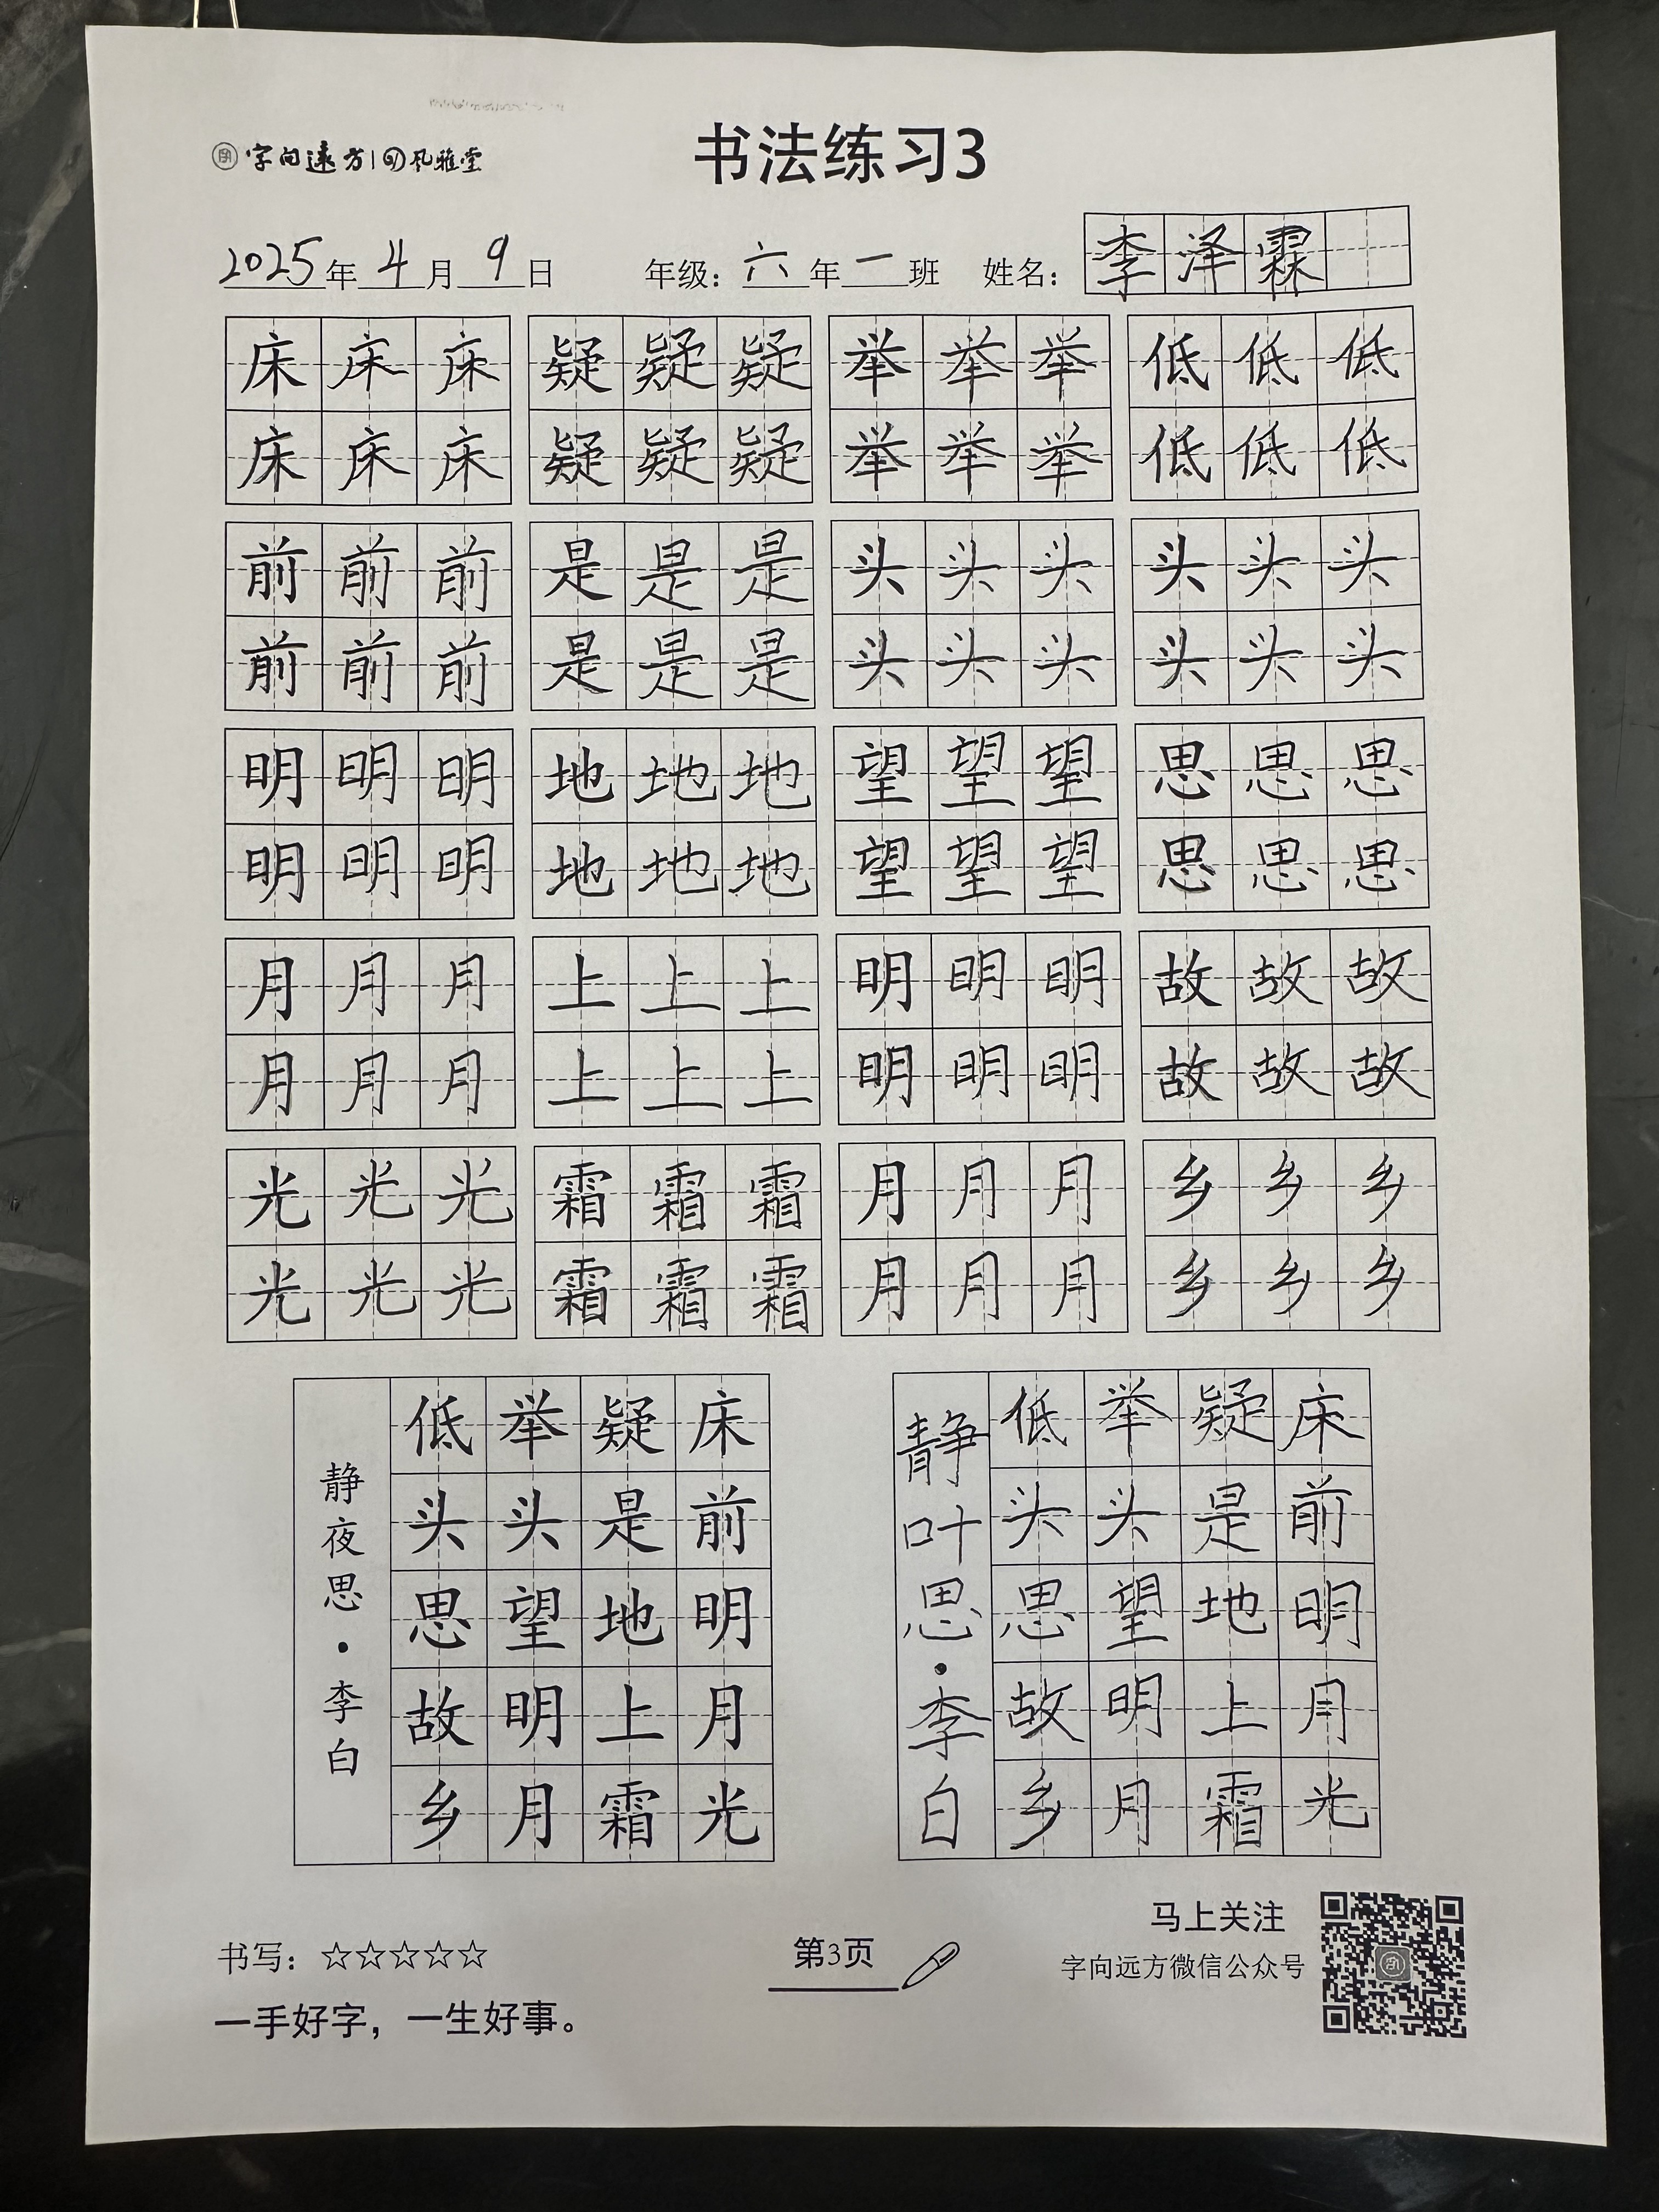 字向远方 | 风雅堂
书法练习3
2025年4月9日 年级：六年一班 姓名：李泽霖
床床床 疑疑疑 举举举 低低低
床床床 疑疑疑 举举举 低低低
前前前 是是是 头头头 头头头
前前前 是是是 头头头 头头头
明明明 地地地 望望望 思思思
明明明 地地地 望望望 思思思
月月月 上上上 明明明 故故故
月月月 上上上 明明明 故故故
光光光 霜霜霜 月月月 乡乡乡
光光光 霜霜霜 月月月 乡乡乡
床前明月光
疑是地上霜
举头望明月
低头思故乡
静夜思·李白
床前明月光
疑是地上霜
举头望明月
低头思故乡
静叶思·李白
书写：☆☆☆☆☆
一手好字，一生好事。
第3页
马上关注
字向远方微信公众号